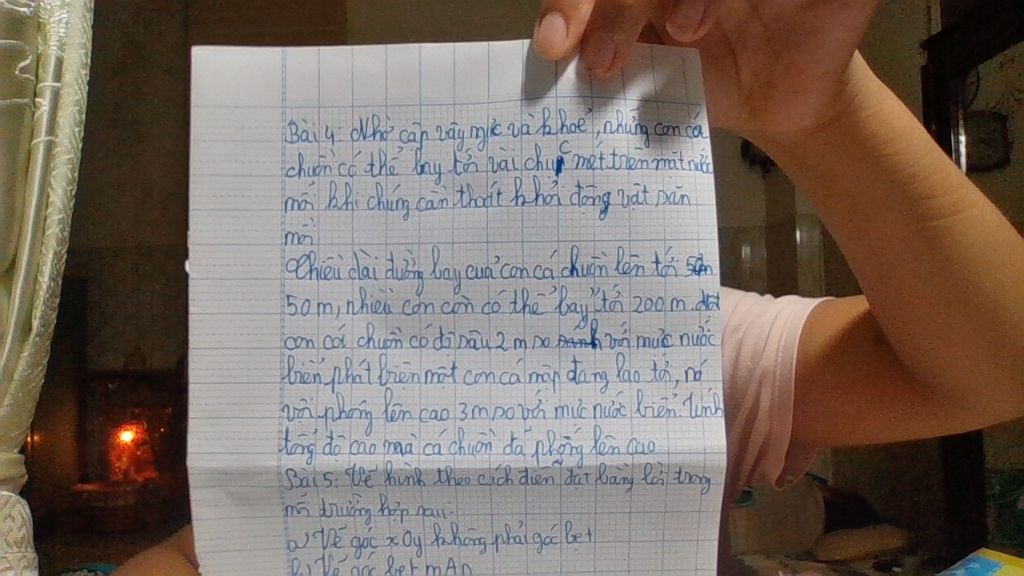 Bài 4: Nhờ cặp vây ngực và khoẻ, những con cá
chuồn có thể bay tới vài chục mét trên mặt nước
mỗi khi chúng cần thoát khỏi động vật săn
mồi
Chiều dài đường bay của con cá chuồn lên tới
50 m, nhiều con còn có thể "bay" tới 200 m. Một
con cá chuồn có độ sâu 2 m so với mực nước
biển phát hiện một con cá mập đang lao tới, nó
vội phóng lên cao 3m so với mực nước biển. Tính
tổng độ cao mà cá chuồn đã phóng lên cao
Bài 5: Vẽ hình theo cách diễn đạt bằng lời trong
mỗi trường hợp sau.
a) Vẽ góc xOy không phải góc bẹt
b) Vẽ góc bẹt mAn